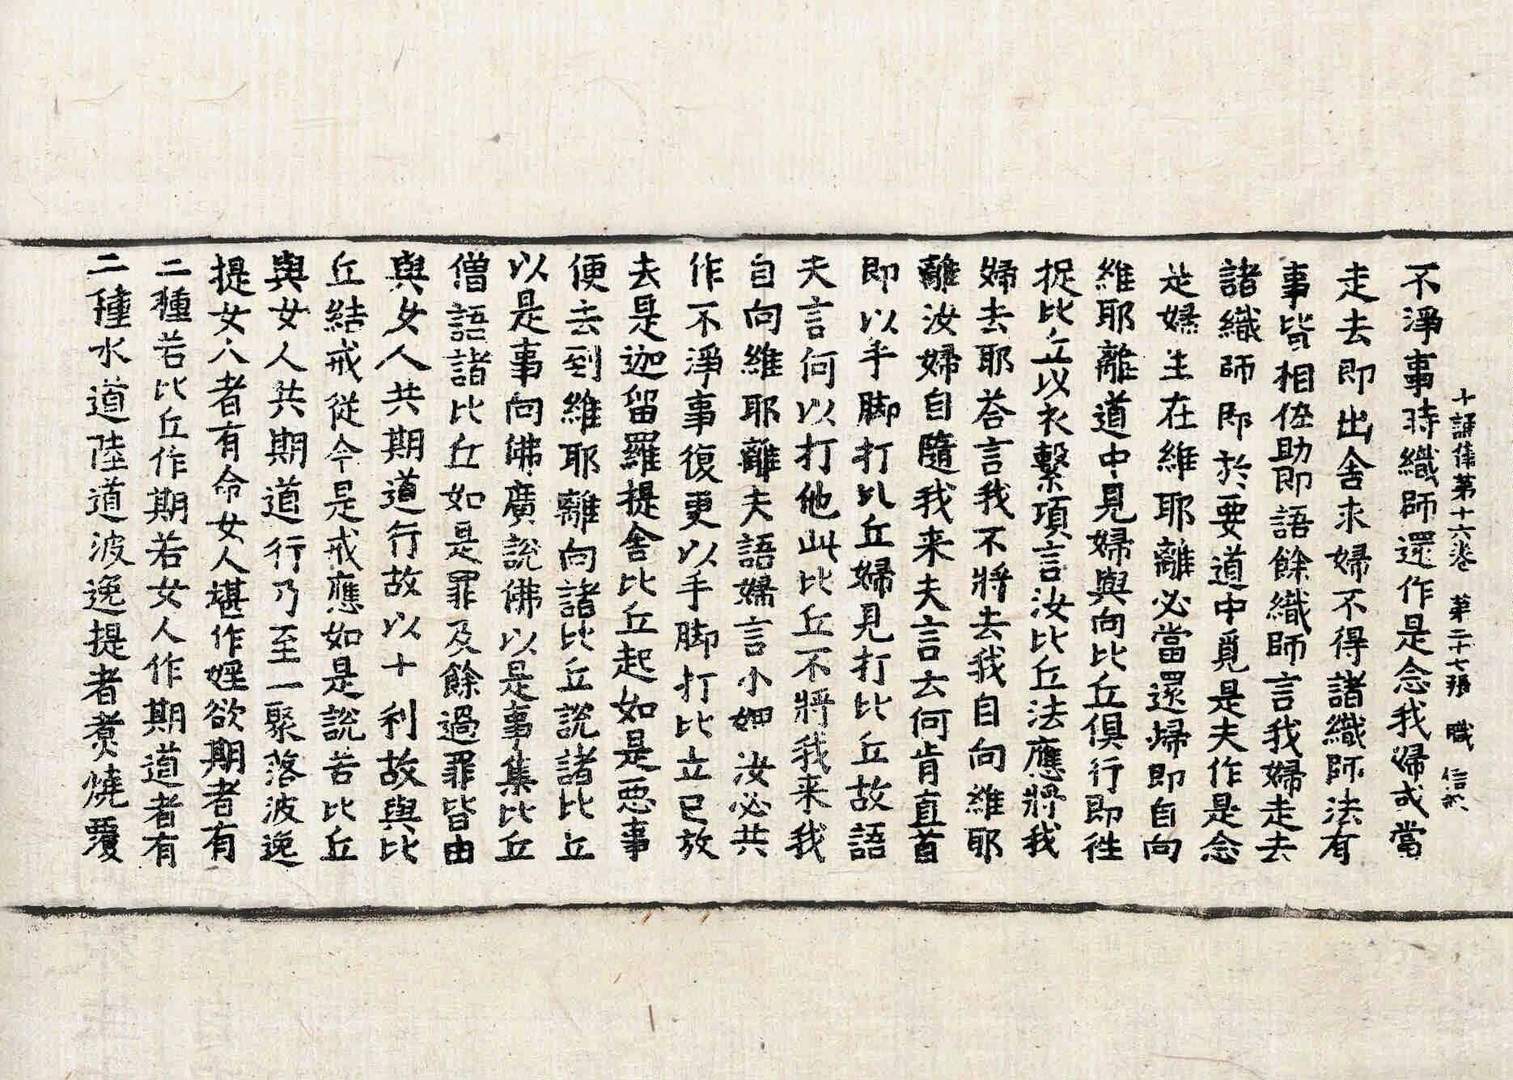 十誦律第十六卷 第二十七張 職 信
不淨事時織師還作是念我婦或當
走去即出舍求婦不得諸織師法有
事皆相佐助即語餘織師言我婦走去
諸織師即於要道中覓是夫作是念
是婦生在維耶離必當還歸即自向
維耶離道中見婦與向比丘俱行即徃
捉比丘以衣繫項言汝比丘法應將我
婦去耶荅言我不將去我自向維耶
離汝婦自隨我来夫言去何肯直首
即以手脚打比丘婦見打比丘故語
夫言何以打他此比丘不將我来我
自向維耶離夫語婦言小婢汝必共
作不淨事復更以手脚打比丘已放
去是迦留羅提舍比丘起如是惡事
便去到維耶離向諸比丘說諸比丘
以是事向佛廣說佛以是事集比丘
僧語諸比丘如是罪及餘過罪皆由
與女人共期道行故以十利故與比
丘結戒從今是戒應如是說若比丘
與女人共期道行乃至一聚落波逸
提女人者有命女人堪作婬欲期者有
二種若比丘作期若女人作期道者有
二種水道陸道波逸提者煑燒覆